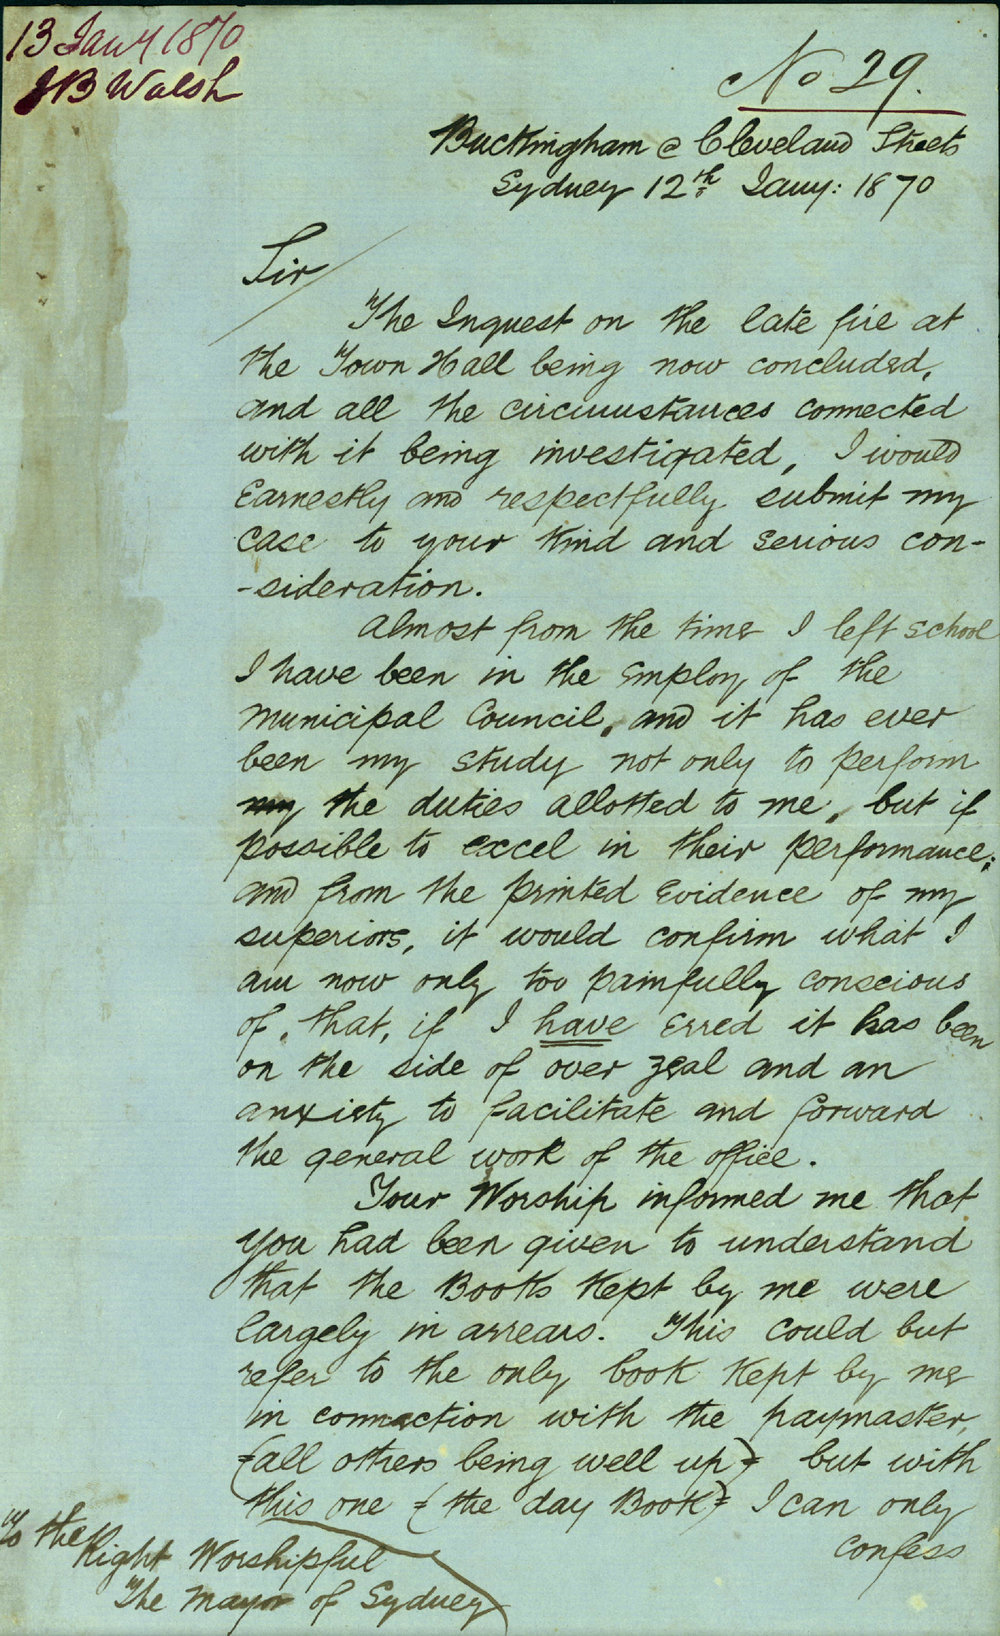 13 Jany 1870
JB Walsh
No 29.
Buckingham & Cleveland Streets
Sydney 12th Jany: 1870
Sir
The Inquest on the late fire at
the Town Hall being now concluded,
and all the circumstances connected
with it being investigated, I would
Earnestly and respectfully submit my
case to your kind and serious con-
-sideration.
Almost from the time I left school
I have been in the Employ of the
Municipal Council, and it has ever
been my study not only to perform
my the duties allotted to me, but if
possible to excel in their performance;
and from the printed Evidence of my
superiors, it would confirm what I
am now only too painfully conscious
of, that, if I have Erred it has been
on the side of over zeal and an
anxiety to facilitate and forward
the general work of the office.
Your Worship informed me that
you had been given to understand
that the Books kept by me were
largely in arrears. This could but
refer to the only book kept by me
in connection with the paymaster,
(all others being well up) but with
this one (the day Book) I can only
confess
To the
Right Worshipful
The Mayor of Sydney